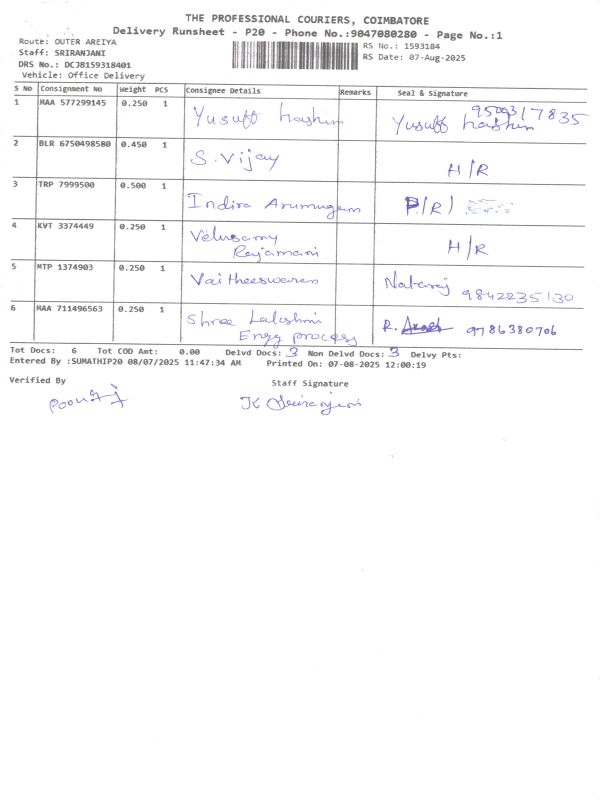 THE PROFESSIONAL COURIERS, COIMBATORE
Delivery Runsheet - P20 - Phone No.:9047080280 - Page No.:1
Route: OUTER AREIYA
RS No.: 1593184
Staff: SRIRANJANI
RS Date: 07-Aug-2025
DRS No.: DCJB159318401
Vehicle: Office Delivery
S No Consignment No Weight PCS Consignee Details Remarks Seal & Signature
1 MAA 577299145 0.250 1 Yusuff hashim Yusuff hashim 9500317835
2 BLR 6750498580 0.450 1 S. Vijay H/R
3 TRP 7999500 0.500 1 Indira Arumugam P/R)
4 KVT 3374449 0.250 1 Velusamy H/R
Rajamani
5 MTP 1374903 0.250 1 Vaitheeswaren Nataraj 9842235130
6 MAA 711496563 0.250 1 Shree Lakshmi R. 9786380706
Engg process
Tot Docs: 6 Tot COD Amt: 0.00 Delvd Docs: 3 Non Delvd Docs: 3 Delvy Pts:
Entered By :SUMATHIP20 08/07/2025 11:47:34 AM Printed On: 07-08-2025 12:00:19
Verified By Staff Signature
K Sriranjani